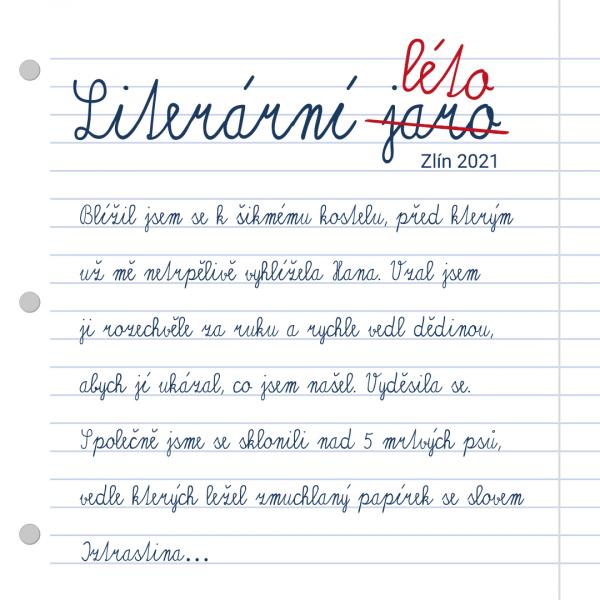 léto
Literární jaro
Zlín 2021
Blížil jsem se k šikmému kostelu, před kterým
už mě netrpělivě vyhlížela Hana. Vzal jsem
ji rozechvěle za ruku a rychle vedl dědinou,
abych jí ukázal, co jsem našel. Vyděsila se.
Společně jsme se sklonili nad 5 mrtvých psů,
vedle kterých ležel zmuchlaný papírek se slovem
Iztrastina...